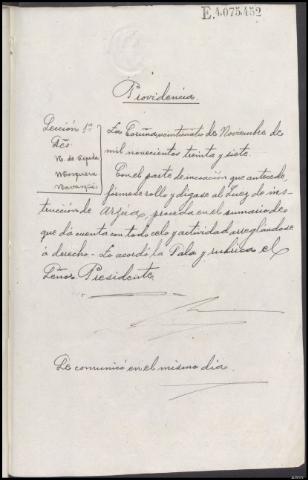 E.4.075.452
Providencia
Sección 1ª
Sres
N. de Cepeda
Mosquera
Navarja
La Coruña veintinueve de Noviembre de
mil novecientos treinta y siete.
Con el parte de incoación que antecede,
fórmese rollo y dígase al Juez de ins-
trucción de Arzúa, proceda en el sumario de
que da cuenta con todo celo y actividad arreglandose
a derecho - Lo acordó la Sala y rubrica el
Señor Presidente.
Se comunicó en el mismo día.